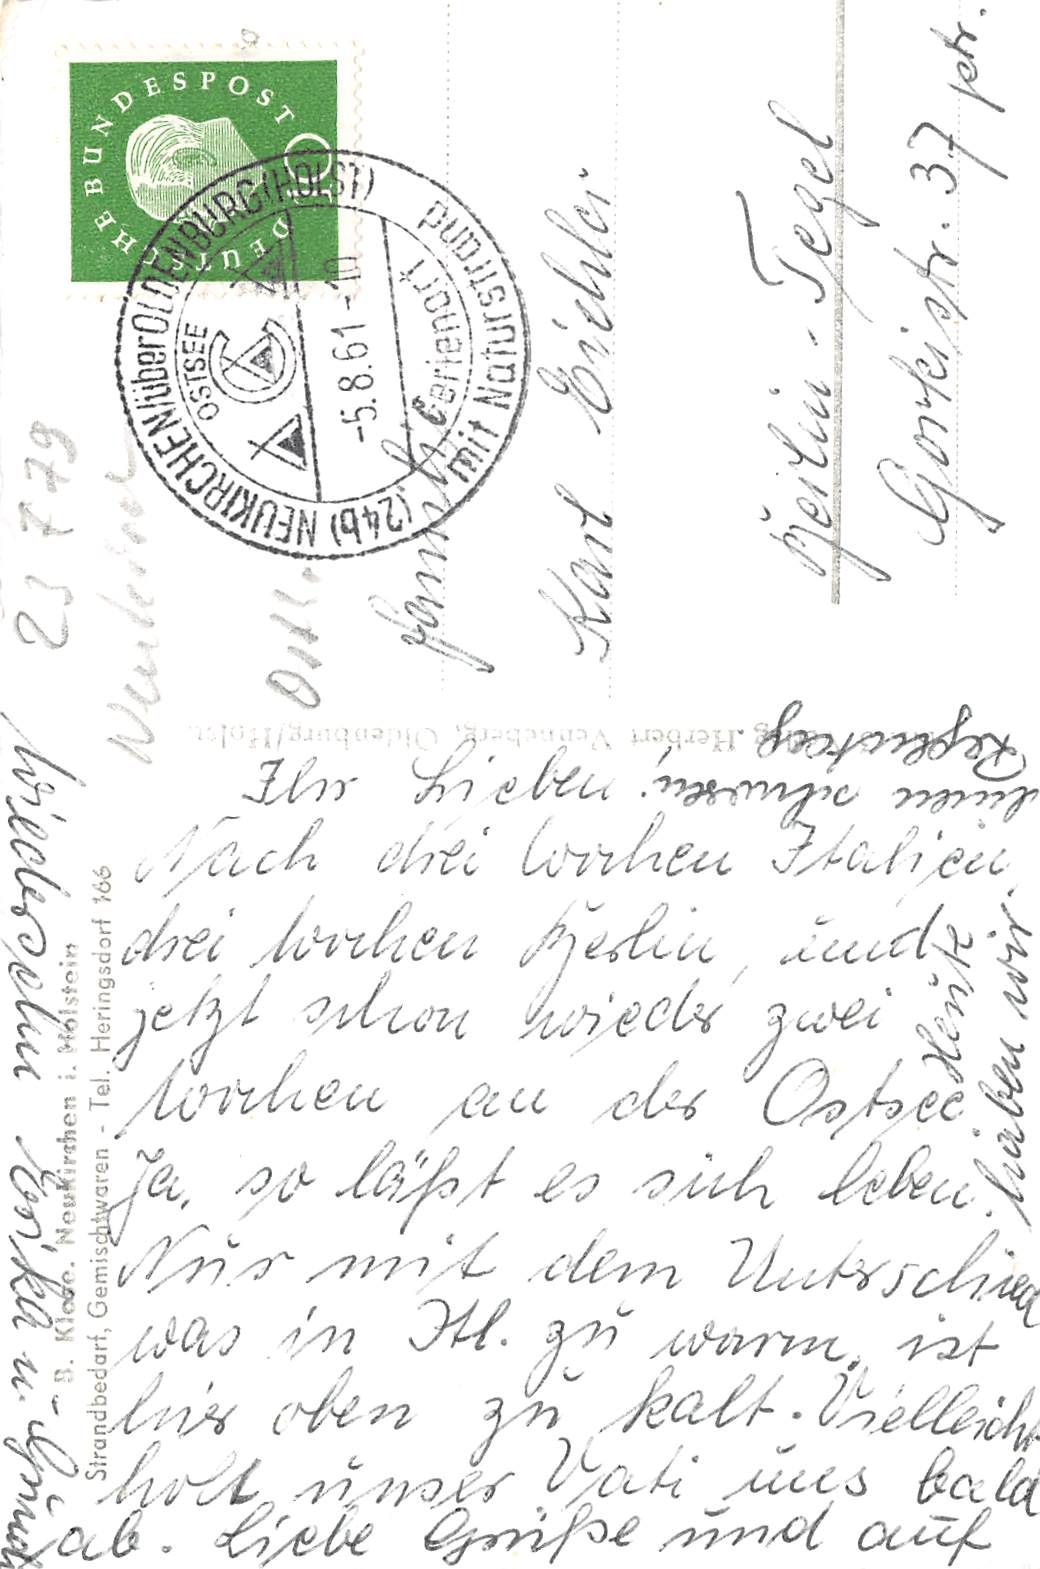 Ihr Lieben!
Nach drei Wochen Italien,
drei Wochen Berlin, und
jetzt schon wieder zwei
Wochen an der Ostsee.
Ja, so läßt es sich leben.
Nur mit dem Unterschied
was in Itl. zu warm, ist
hier oben zu kalt. Vielleicht
holt unser Vati uns bald
ab. Liebe Grüße und auf
Wiedersehn Erika u.
Heute
haben wir
einen schweren
Regentag
Familie
Karl Eichler
Berlin-Tegel
Gorkistr. 37 ptr.
DEUTSCHE BUNDESPOST
10
(24b) NEUKIRCHEN/über OLDENBURG (HOLST)
OSTSEE
-5.8.61-10
Ferienort
mit Naturstrand
23 7 79
Ostl.
Herbert Venneberg, Oldenburg/Holst.
B. Klose. Neukirchen i. Holstein
Strandbedarf, Gemischtwaren - Tel. Heringsdorf 166